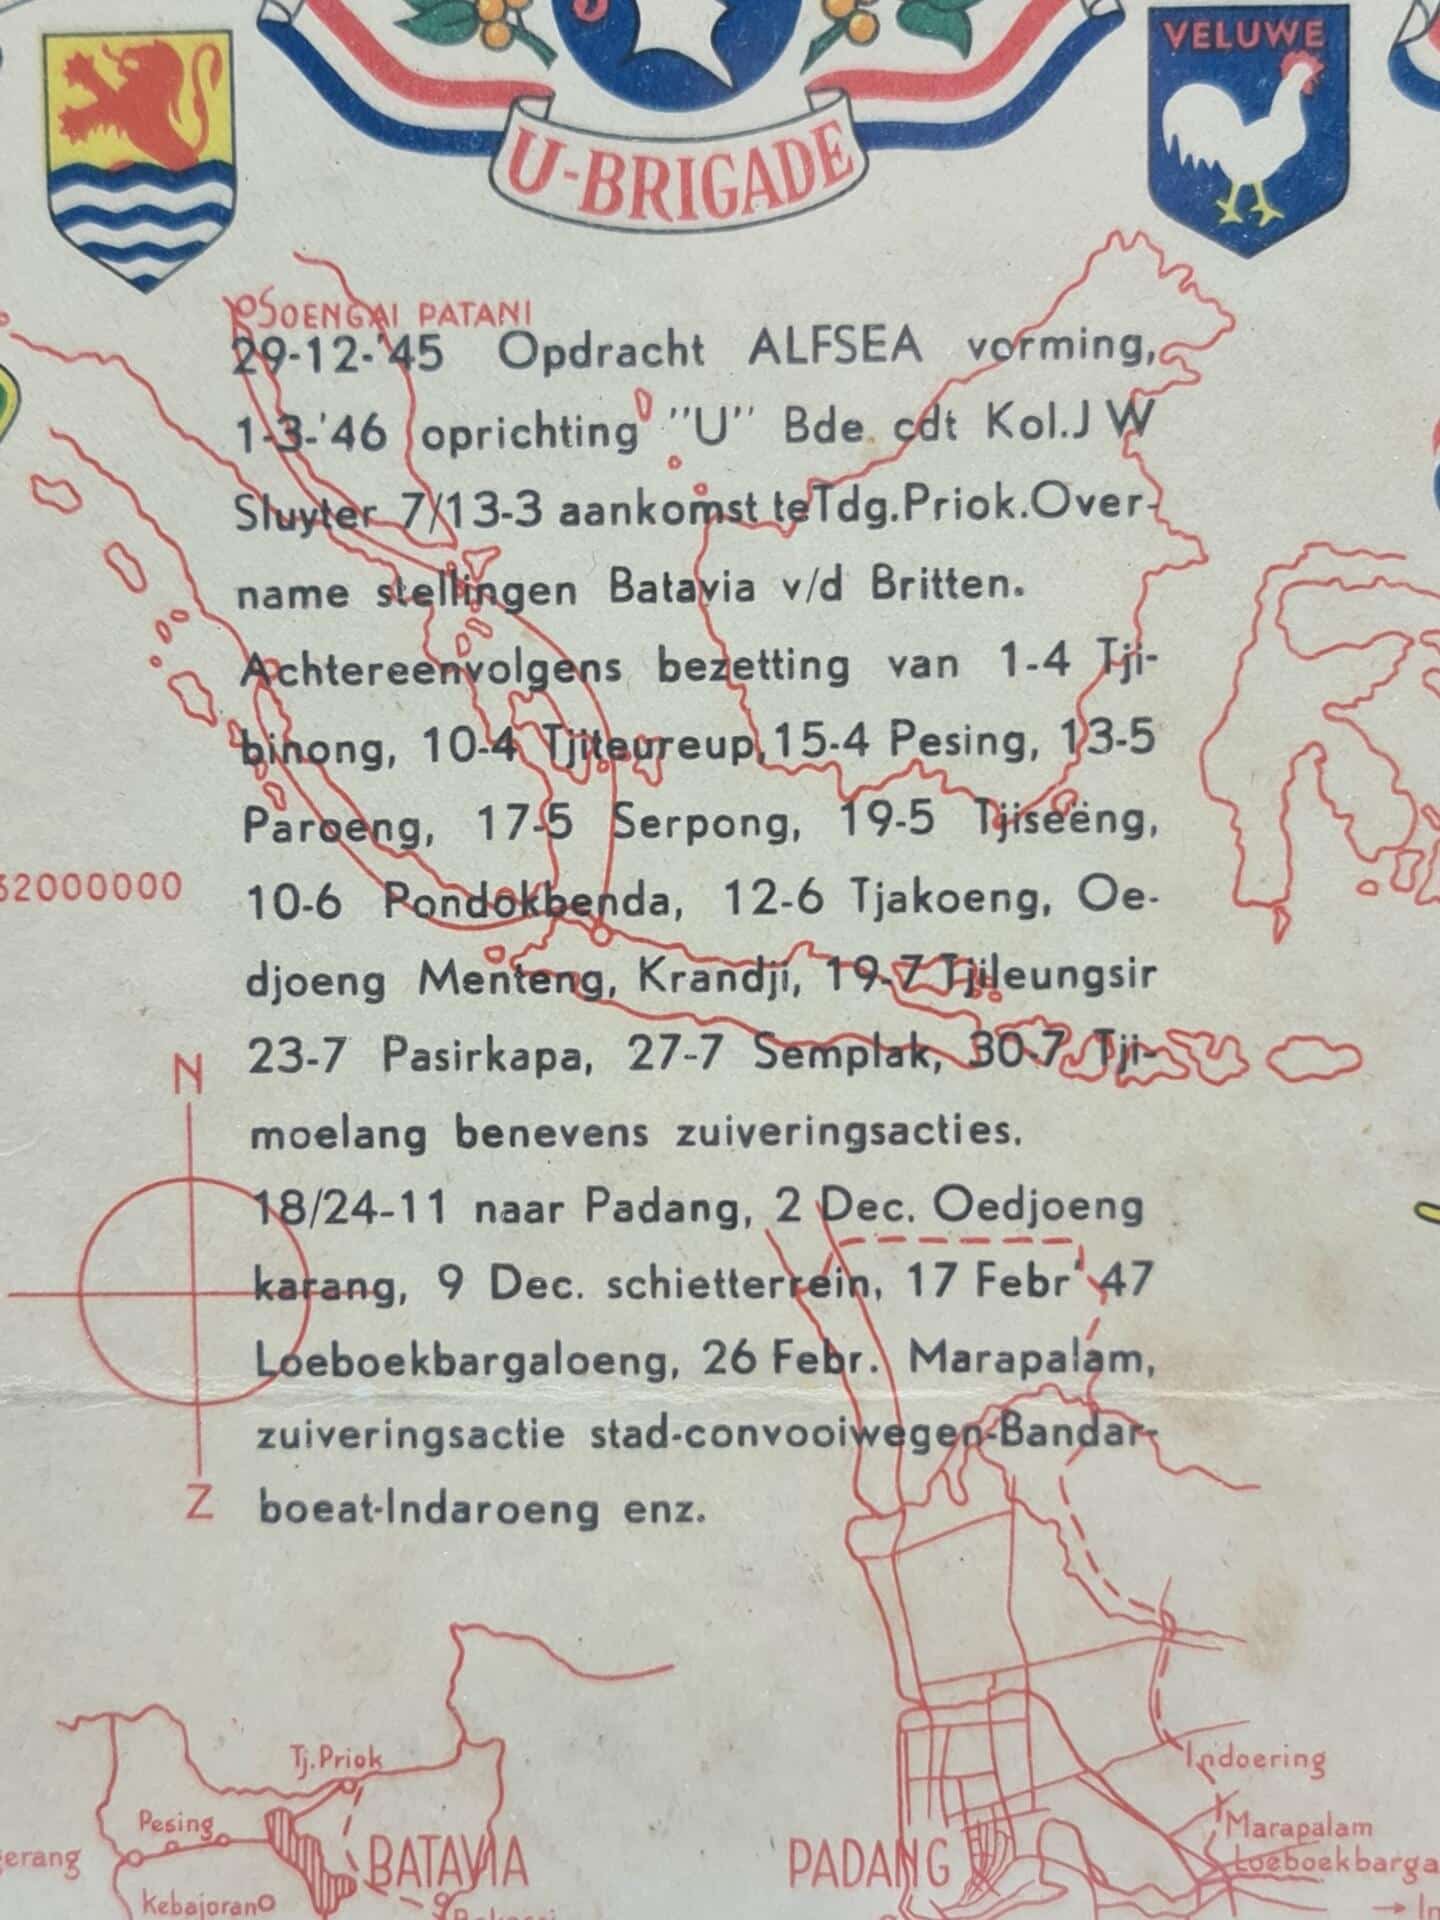 VELUWE
U-BRIGADE
SOENGAI PATANI
29-12-'45 Opdracht ALFSEA vorming,
1-3-'46 oprichting "U" Bde cdt Kol.J W
Sluyter 7/13-3 aankomst te Tdg.Priok.Over-
name stellingen Batavia v/d Britten.
Achtereenvolgens bezetting van 1-4 Tji-
binong, 10-4 Tjiteureup, 15-4 Pesing, 13-5
Paroeng, 17-5 Serpong, 19-5 Tjiseëng,
2000000
10-6 Pondokbenda, 12-6 Tjakoeng, Oe-
djoeng Menteng, Krandji, 19-7 Tjileungsir
23-7 Pasirkapa, 27-7 Semplak, 30-7 Tji-
N
moelang benevens zuiveringsacties.
18/24-11 naar Padang, 2 Dec. Oedjoeng
karang, 9 Dec. schietterrein, 17 Febr' 47
Loeboekbargaloeng, 26 Febr. Marapalam,
zuiveringsactie stad-convooiwegen-Bandar-
Z
boeat-Indaroeng enz.
Tj.Priok
Indoering
Pesing
Marapalam
erang
BATAVIA
PADANG
Loeboekbarga
Kebajoran